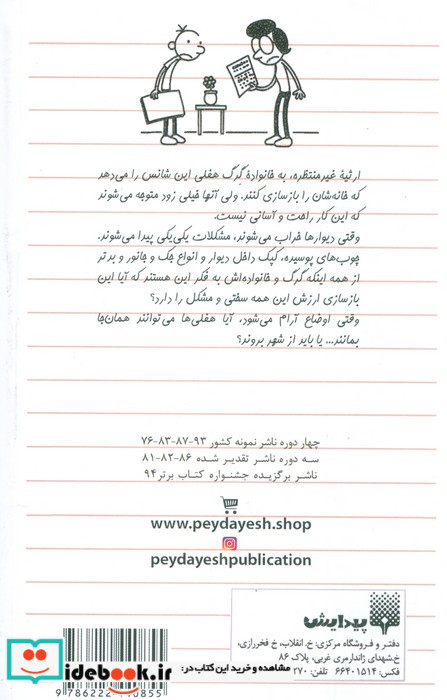 ارثیهٔ غیرمنتظره، به خانوادهٔ گِرِگ هفلی این شانس را می‌دهد
که خانه‌شان را بازسازی کنند. ولی آنها خیلی زود متوجه می‌شوند
که این کار راحت و آسانی نیست.
وقتی دیوارها خراب می‌شوند، مشکلات یکی‌یکی پیدا می‌شوند.
چوب‌های پوسیده، کپک داخل دیوار و انواع جک و جانور و بدتر
از همه اینکه گرگ و خانواده‌اش به فکر این هستند که آیا این
بازسازی ارزش این همه سختی و مشکل را دارد؟
وقتی اوضاع آرام می‌شود، آیا هفلی‌ها می‌توانند همان‌جا
بمانند... یا باید از شهر بروند؟
چهار دوره ناشر نمونه کشور ۹۳-۸۷-۸۳-۷۶
سه دوره ناشر تقدیر شده ۸۶-۸۲-۸۱
ناشر برگزیده جشنواره کتاب برتر ۹۴
www.peydayesh.shop
peydayeshpublication
پیدایش
دفتر و فروشگاه مرکزی: خ. انقلاب، خ فخررازی،
خ شهدای ژاندارمری غربی، پلاک ۸۶
فکس: ۶۶۴۰۱۵۱۴ تلفن: ۲۷۰
مشاهده و خرید این کتاب در:
idebook.ir